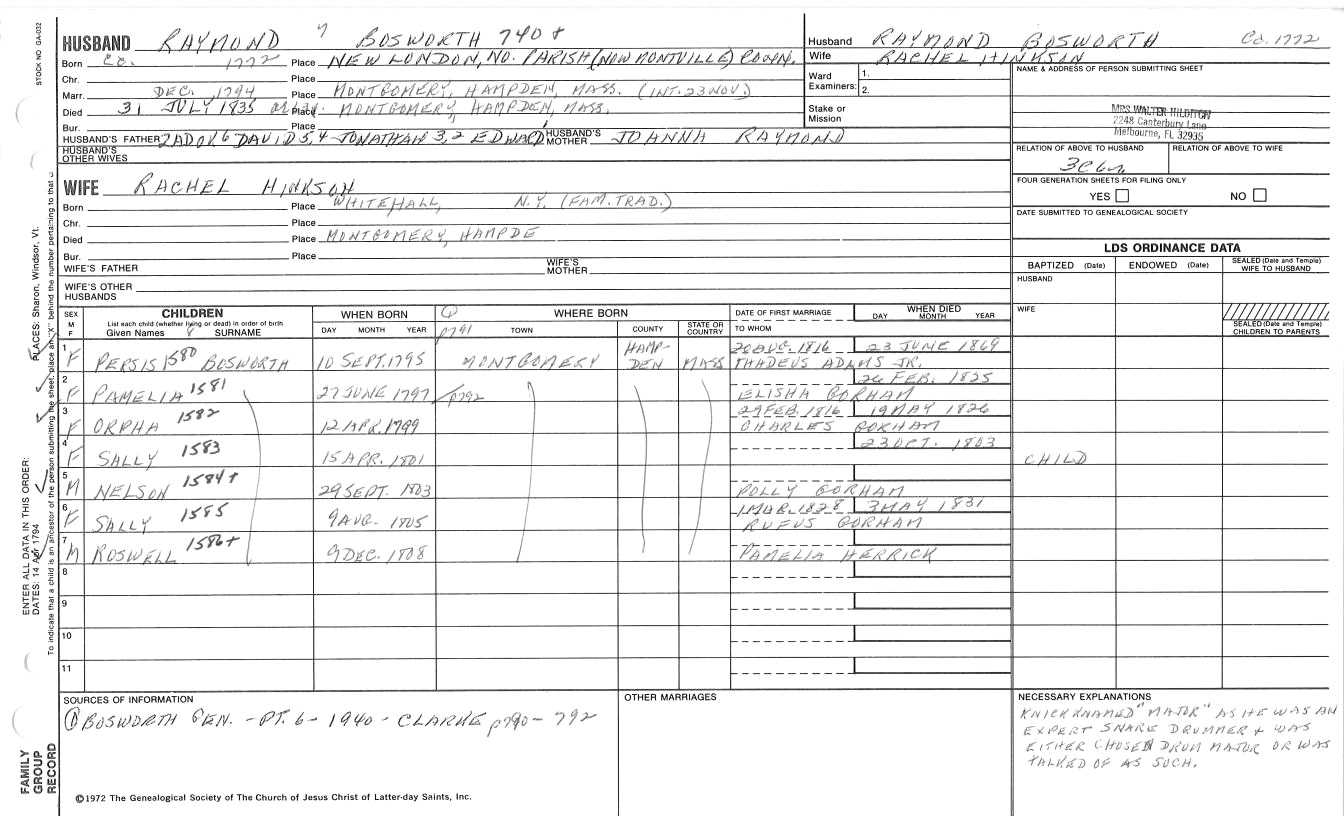 STOCK NO. GA-032
HUSBAND RAYMOND 7 BOSWORTH 740+
Born Ca. 1772 Place NEW LONDON, NO. PARISH (NOW MONTVILLE) CONN.
Chr. Place
Marr. DEC. 1794 Place MONTGOMERY, HAMPDEN, MASS. (INT. 23 NOV.)
Died 31 JULY 1835 Place MONTGOMERY, HAMPDEN, MASS.
Bur. Place
HUSBAND'S FATHER ZADOK 6 DAVID 5, 4 JONATHAN 3, 2 EDWARD 1 HUSBAND'S MOTHER JOANNA RAYMOND
HUSBAND'S OTHER WIVES
WIFE RACHEL HINKSON
Born Place WHITEHALL, N.Y. (FAM. TRAD.)
Chr. Place
Died Place MONTGOMERY, HAMPDE
Bur. Place
WIFE'S FATHER WIFE'S MOTHER
WIFE'S OTHER HUSBANDS
Husband RAYMOND BOSWORTH Ca. 1772
Wife RACHEL HINKSON
Ward Examiners: 1. 2.
Stake or Mission
NAME & ADDRESS OF PERSON SUBMITTING SHEET
MRS WALTER HILDITCH
2248 Canterbury Lane
Melbourne, FL 32935
RELATION OF ABOVE TO HUSBAND RELATION OF ABOVE TO WIFE
FOUR GENERATION SHEETS FOR FILING ONLY
YES NO
DATE SUBMITTED TO GENEALOGICAL SOCIETY
LDS ORDINANCE DATA
BAPTIZED (Date) ENDOWED (Date) SEALED (Date and Temple) WIFE TO HUSBAND
HUSBAND
WIFE
SEALED (Date and Temple) CHILDREN TO PARENTS
SEX M F CHILDREN WHEN BORN ① WHERE BORN DATE OF FIRST MARRIAGE WHEN DIED
List each child (whether living or dead) in order of birth
Given Names 8 SURNAME DAY MONTH YEAR p791 TOWN COUNTY STATE OR COUNTRY TO WHOM DAY MONTH YEAR
1 F PERSIS 1580 BOSWORTH 10 SEPT. 1795 MONTGOMERY HAMPDEN MASS 20 AUG. 1816 23 JUNE 1869
THADEUS ADAMS JR.
2 F PAMELIA 1581 27 JUNE 1797 p792 26 FEB. 1825
ELISHA GORHAM
3 F ORPHA 1582 12 APR. 1799 29 FEB. 1816 19 MAY 1826
CHARLES GORHAM
4 F SALLY 1583 15 APR. 1801 23 OCT. 1803 CHILD
5 M NELSON 1584+ 29 SEPT. 1803 POLLY GORHAM
6 F SALLY 1585 9 AUG. 1805 1 MAR. 1828 3 MAY 1831
RUFUS GORHAM
7 M ROSWELL 1586+ 9 DEC. 1808 PAMELIA HERRICK
8
9
10
11
SOURCES OF INFORMATION
① BOSWORTH GEN. - PT. 6 - 1940 - CLARKE p790 - 792
©1972 The Genealogical Society of The Church of Jesus Christ of Latter-day Saints, Inc.
OTHER MARRIAGES
NECESSARY EXPLANATIONS
KNICKKNAMED "MAJOR" AS HE WAS AN
EXPERT SNARE DRUMMER & WAS
EITHER CHOSEN DRUM MAJOR OR WAS
TALKED OF AS SUCH.
PLACES: Sharon, Windsor, Vt.
ENTER ALL DATA IN THIS ORDER:
DATES: 14 Apr 1794
To indicate that a child is an ancestor of the person submitting the sheet, place an "X" behind the number pertaining to that
FAMILY GROUP RECORD